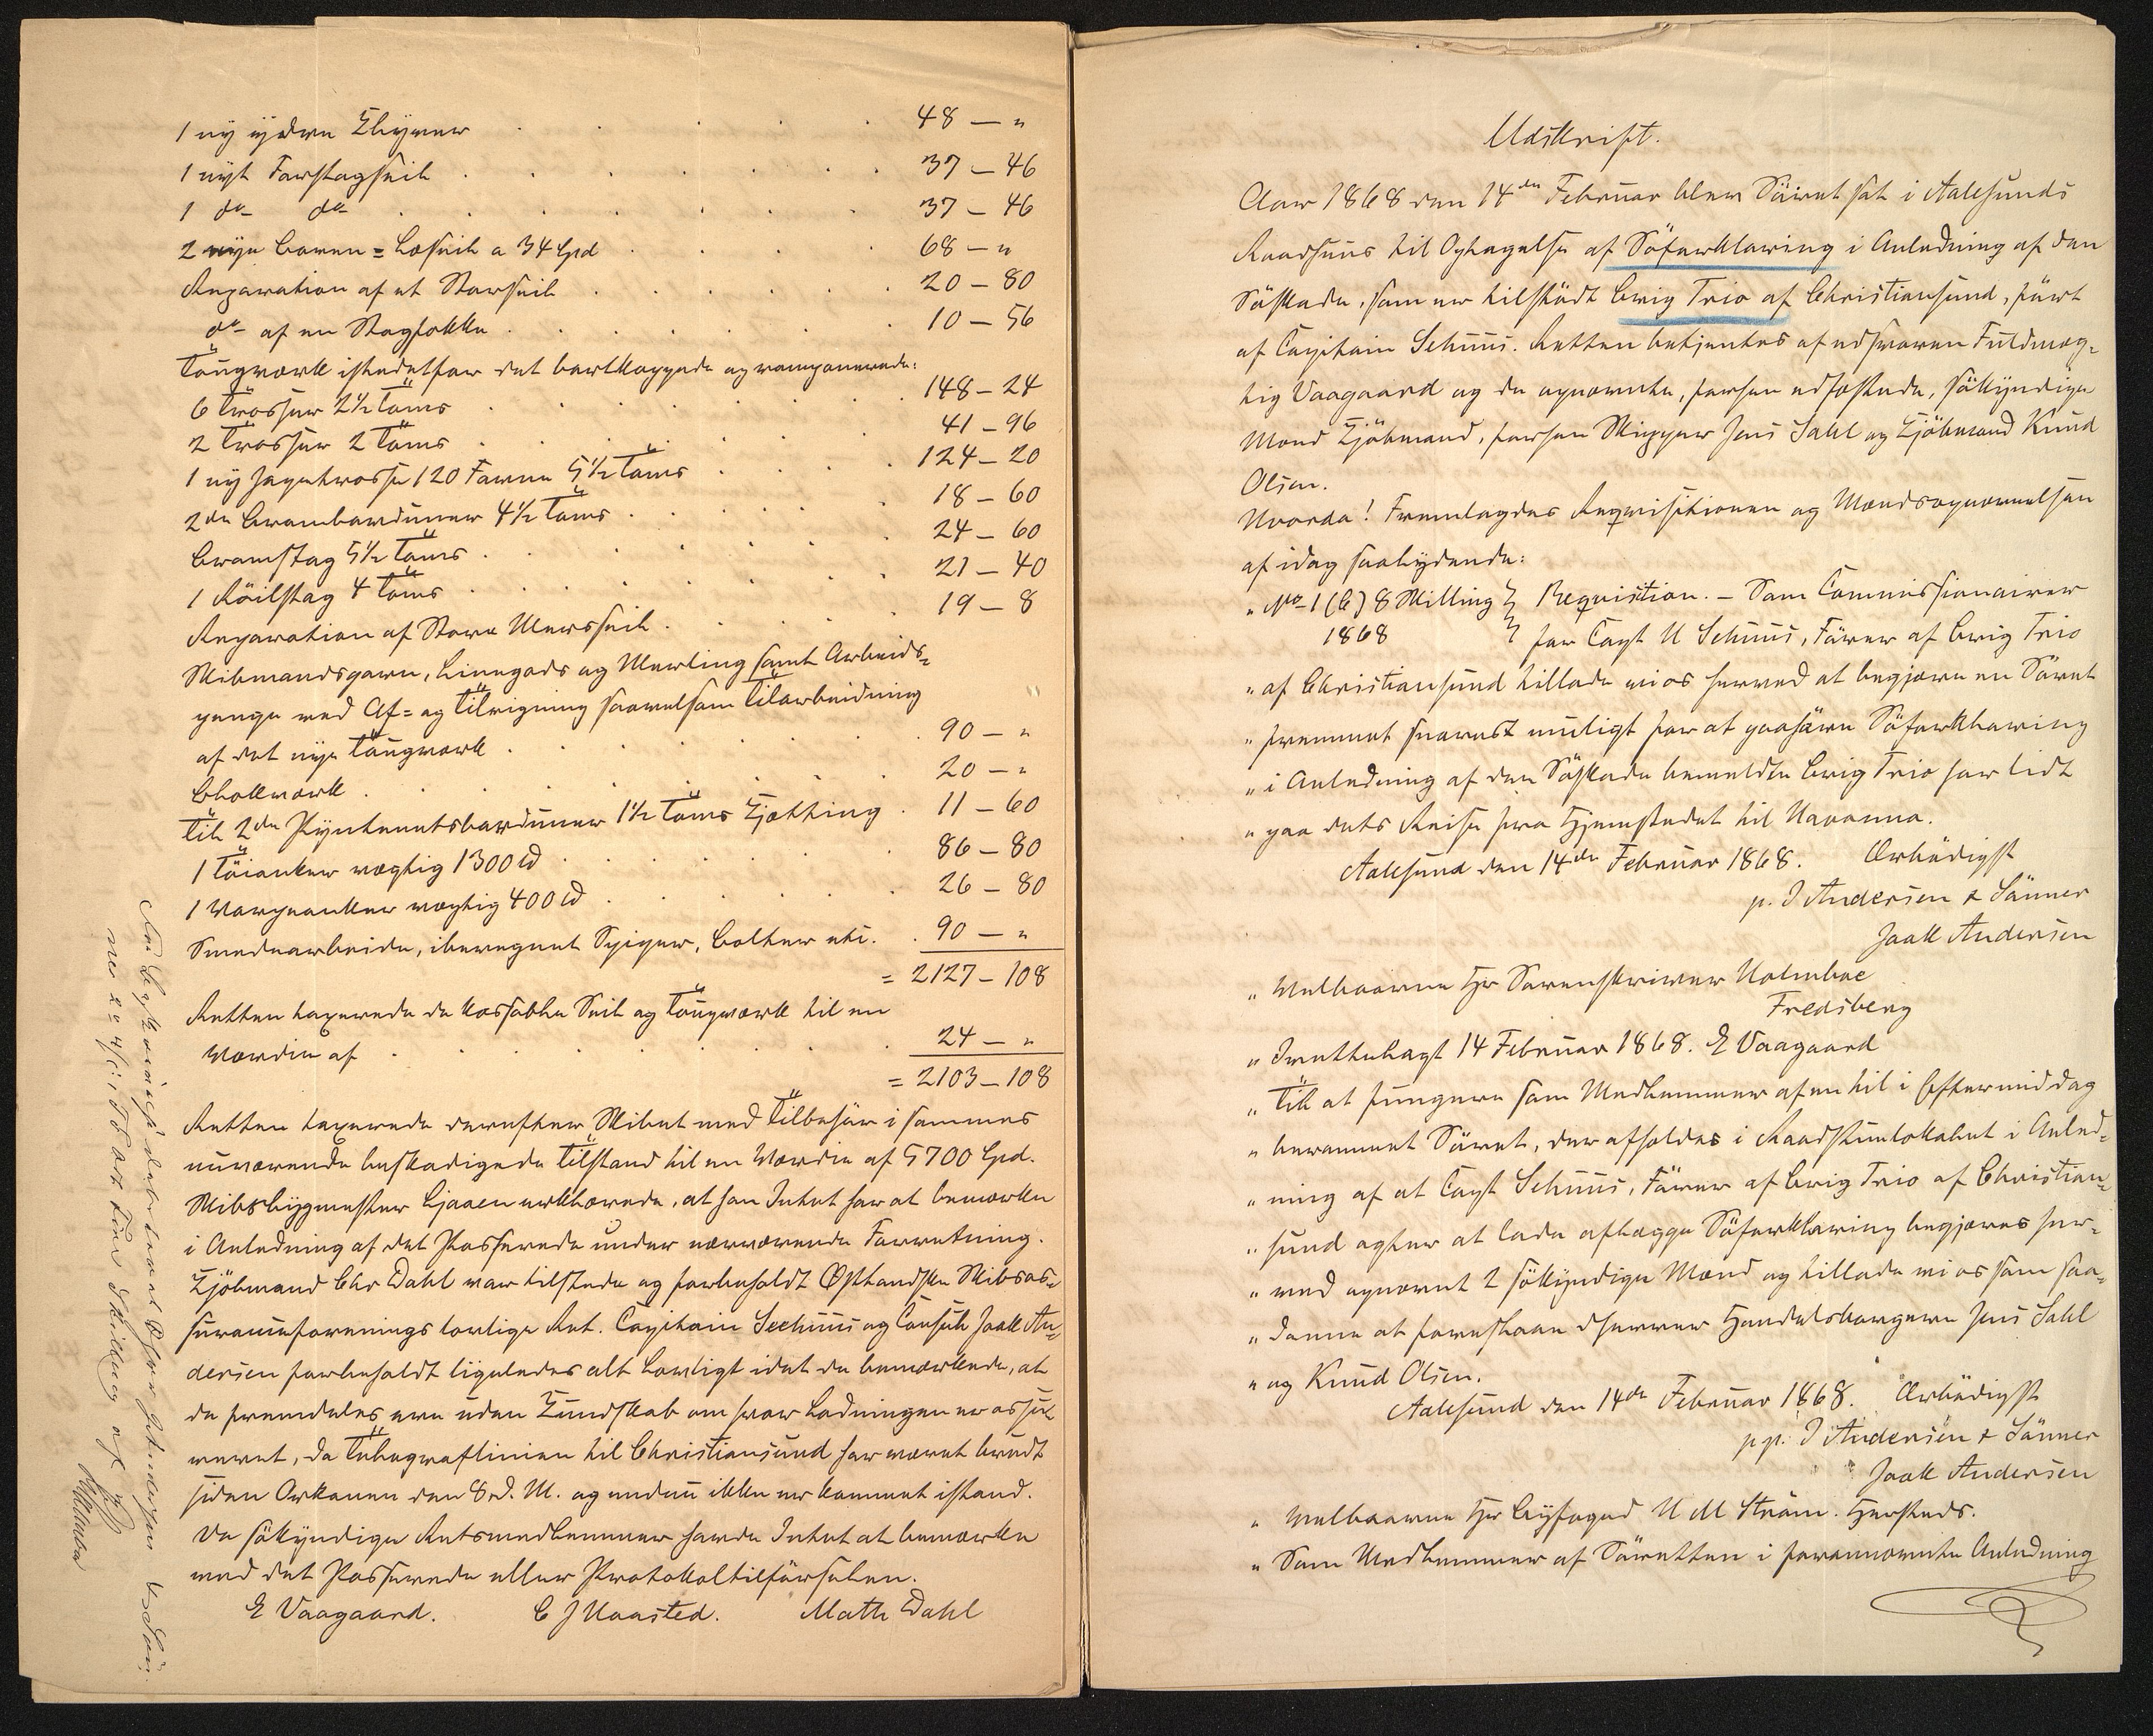 1 ny ydre Klyver . . . . . 48 — "
1 nyt Forstagseil . . . . . . . 37 – 46
1 do do . . . . . . . 37 – 46
2 nye Boven = Læseil a 34 Spd . . . . 68 – "
Reparation af et Storseil . . . . . 20 – 80
do af en Stagfokke . . . . . . 10 – 56
Tougværk istedetfor det bortkappede og ramponerede:
6 Trosser 2½ Toms . . . . . . 148 – 24
2 Trosser 2 Toms . . . . . . 41 – 96
1 ny Pertrosse 120 Favne 5½ Toms . . . . 124 – 20
2de Brambarduner 4½ Toms . . . . 18 – 60
Bramstag 5½ Toms . . . . . . 24 – 60
1 Röilstag 4 Toms . . . . . . 21 – 40
Reparation af Store Mersseil . . . . 19 – 8
Skibmandsgarn, Linegods og Merling samt Arbeids-
penge ved Af= og Tilrigning saavelsom Tilarbeidning
af det nye Tougværk . . . . . . 90 – "
Blokværk . . . . . . . 20 – "
Til 2de Pyntenetsbarduner 1½ Toms Kjætting . 11 – 60
1 Töianker vægtig 1300 ℔ . . . . . 86 – 80
1 Varpeanker vægtig 400 ℔ . . . . 26 – 80
Smedearbeide, iberegnet Spiger, Bolter etc. . 90 – "
= 2127 – 108
Retten taxerede de kassable Seil og Tougværk til en
Værdie af . . . . . . 24 – "
= 2103 – 108
Retten taxerede derefter Skibet med Tilbehör i sammes
nuværende beskadigede Tilstand til en Værdie af 5700 Spd.
Skibsbygmester Liaaen erklærede, at han Intet har at bemærke
i Anledning af det Passerede under nærværende Forretning.
Kjöbmand Chr Dahl var tilstede og forbeholdt Østlandske Skibsas-
suranceforenings lovlige Ret. Capitain Schuus og Consul Jaak An-
dersen forbeholdt ligeledes alt Lovligt idet de bemærkede, at
de fremdeles ere uden Kundskab om hvor Ladningen er assu-
reret, da Telegraflinien til Christiansund har været brudt
siden Orkanen den 8 d. M. og endnu ikke er kommet istand.
De sökyndige Retsmedlemmer havde Intet at bemærke
med det Passerede eller Protokoltilförselen.
E Vaagaard. C J Kaasted. Math Dahl
Udskrift.
Aar 1868 den 14de Februar blev Söiret sat i Aalesunds
Raadhuus til Optagelse af Söforklaring i Anledning af den
Söskade, som er tilstödt Brig Trio af Christiansund, fört
af Capitain Schuus. Retten betjentes af edsvoren Fuldmæg-
tig Vaagaard og de opnævnte, forhen edfæstede, sökyndige
Mænd Kjöbmænd, forhen Skipper Jens Dahl og Kjöbmand Knud
Olsen.
Hvorda! Fremlagdes Reqvisitionen og Mændsopnævnelsen
af idag saalydende:
" No 1 (B) 8 Skilling } Reqvisition. – Som Commissionairer
1868 } for Capt H Schuus, Förer af Brig Trio
" af Christiansund tillade vi os herved at begjære en Söret
" fremmet snarest muligt for at paahöre Söforklaring
" i Anledning af den Söskade bemeldte Brig Trio har lidt
" paa dets Reise fra Hjemstedet til Havanna.
Aalesund den 14de Februar 1868. Ærbödigst
p. J Andersen & Sönner
Jaak Andersen
" Velbaarne Hr Sorenskriver Holmboe
Fredsberg
" Irettelagt 14 Februar 1868. E Vaagaard
" Til at fungere som Medlemmer af en til i Eftermiddag
" berammet Söret, der afholdes i Raadstuelokalet i Anled-
" ning af at Capt Schuus, Förer af Brig Trio af Christian-
" sund agter at lade aflægge Söforklaring begjæres her-
" ved opnævnt 2 sökyndige Mænd og tillade vi os som saa-
" danne at foreslaae dHerrer Handelsborgere Jens Dahl
" og Knud Olsen.
Aalesund den 14de Februar 1868. Ærbödigst
pp. J Andersen & Sönner
" Jaak Andersen
" Velbaarne Hr Byfoged H M Ström. Hersteds.
" Som Medlemmer af Söretten i forannævnte Anledning